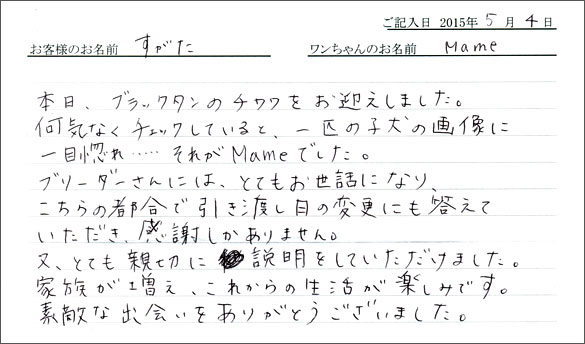 ご記入日 2015年 5月 4日
お客様のお名前 すがた ワンちゃんのお名前 Mame
本日、ブラックタンのチワワをお迎えしました。
何気なくチェックしていると、一匹の子犬の画像に
一目惚れ……それがMameでした。
ブリーダーさんには、とてもお世話になり、
こちらの都合で引き渡し日の変更にも答えて
いただき、感謝しかありません。
又、とても親切に説明をしていただけました。
家族が増え、これからの生活が楽しみです。
素敵な出会いをありがとうございました。